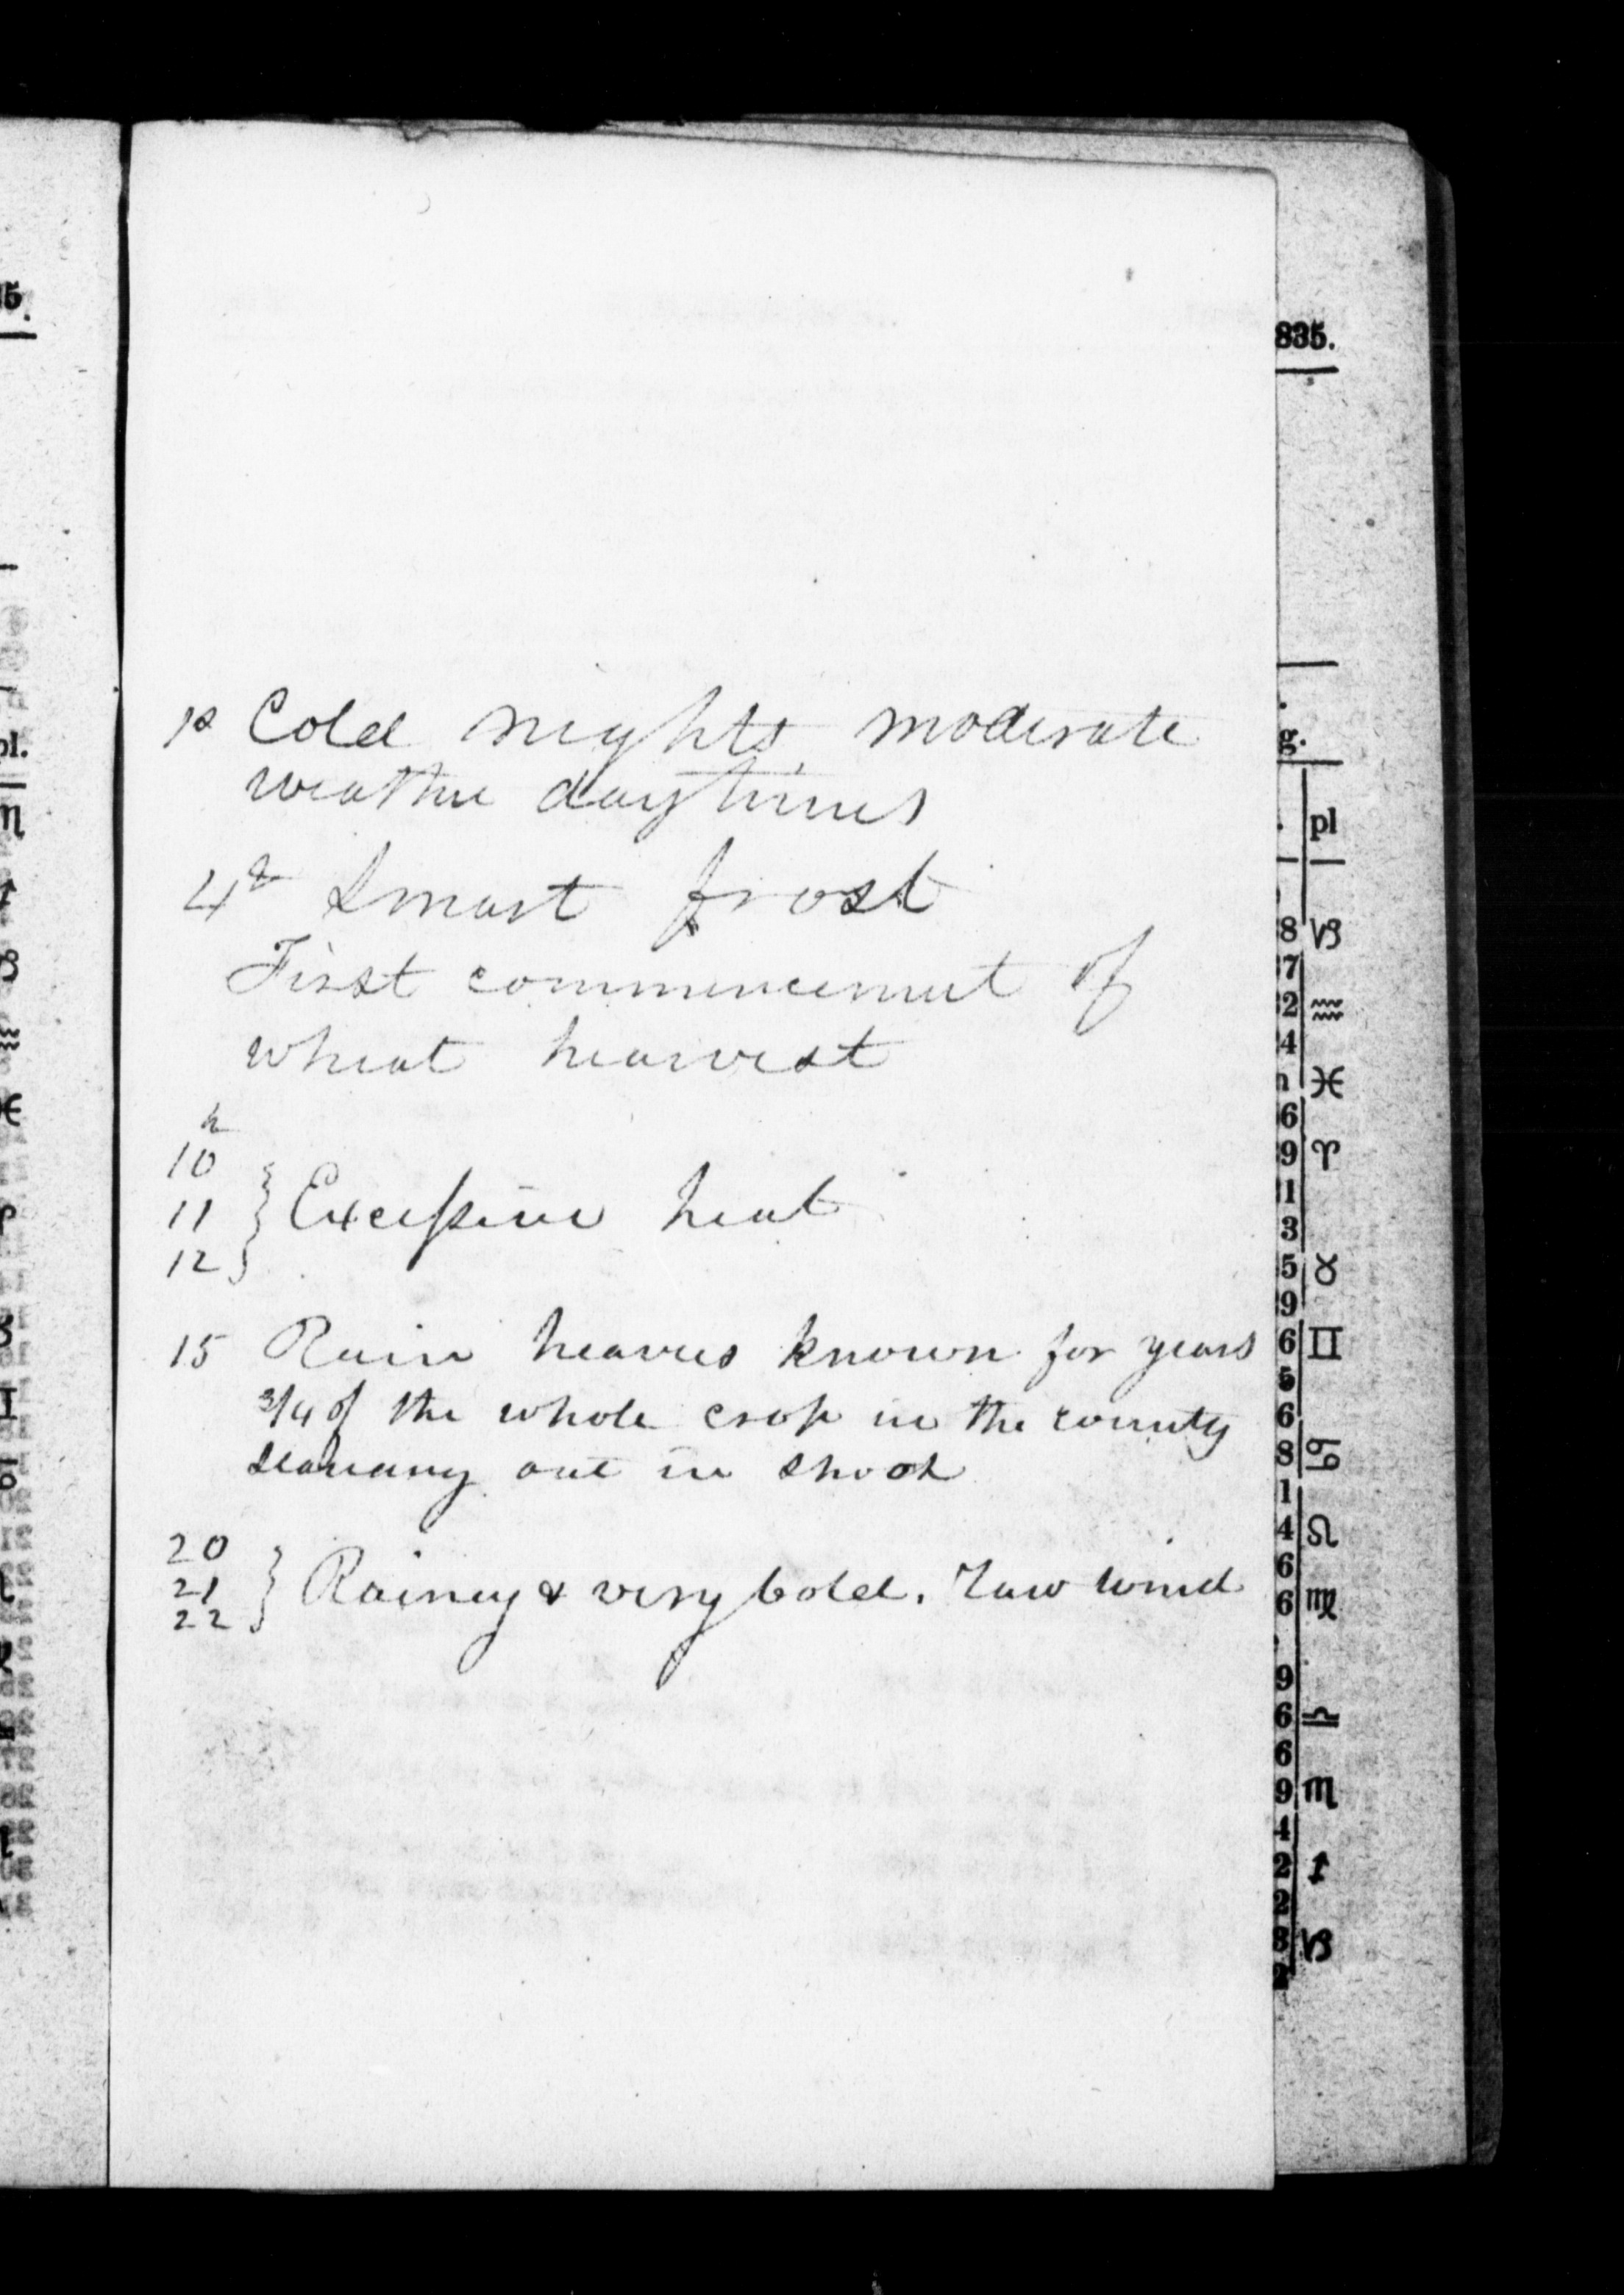 1st Cold nights moderate
weather daytimes
4th Smart frost
First commencement of
wheat hearvest
10
11 } Excessive heat
12
15 Rain heaves known for years
3/4 of the whole crop in the county
out in shock
20
21 } Rainey & very Cold. Raw wind
22
835.
g.
pl
8 ♑
7
2 ♒
4
n ♓
6
9 ♈
1
3
5 ♉
9
6 ♊
5
6
8 ♋
1
4 ♌
6
6 ♍
9
6 ♎
6
9 ♏
4
2 ♐
2
8 ♑
2